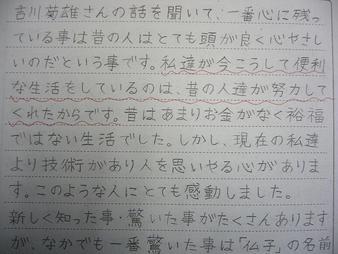 吉川菊雄さんの話を聞いて、一番心に残っ
ている事は昔の人はとても頭が良く心やさし
いのだという事です。私達が今こうして便利
な生活をしているのは、昔の人達が努力して
くれたからです。昔はあまりお金がなく裕福
ではない生活でした。しかし、現在の私達
より技術があり人を思いやる心がありま
す。このような人にとても感動しました。
新しく知った事・驚いた事がたくさんあります
が、なかでも一番驚いた事は「仏子」の名前